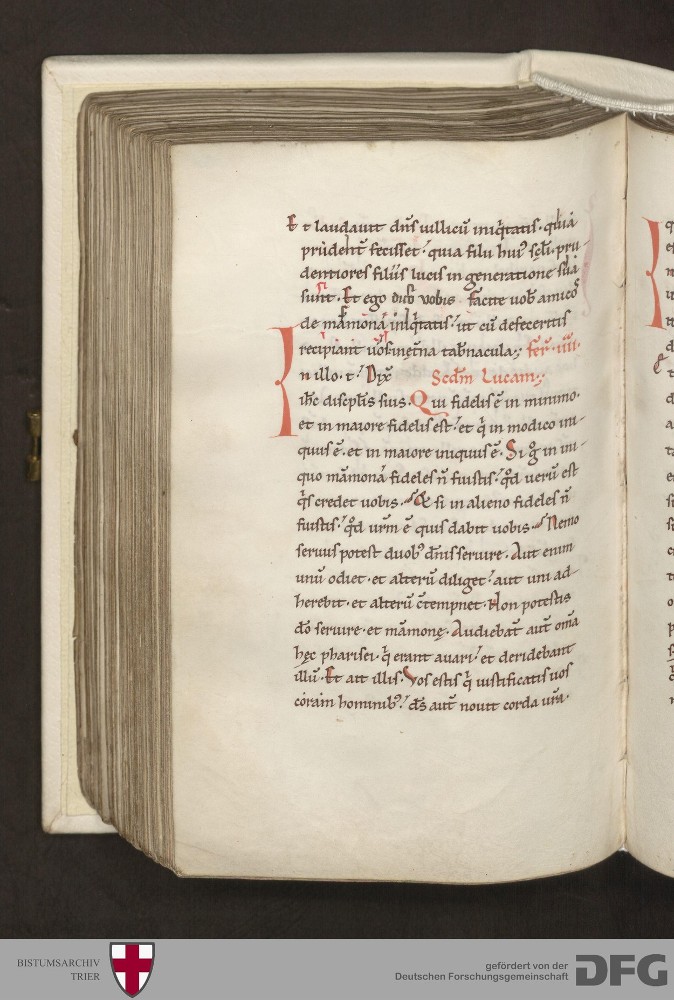 Et laudavit dn̄s uillicū iniq̇tatis· quia
prudent̄ fecisset: quia filii hui᾿ sc̄li· pru-
dentiores filiis lucis in generatione sua
sunt· Et ego dico vobis facite uob̄ amicos
de māmona iniq̇tatis: ut cū defeceritis
recipiant uos in ęt̄na tab̄nacula; fer̄· iiii·
In illo· t: Dix̄ Scd̄m Lucam;
ih̄c discip̄lis suis· Qui fidelis ē in minimo·
et in maiore fidelis est: et q̇ in modico ini-
quus ē· et in maiore iniquus ē· Si g̊ in ini-
quo māmona fideles n̄ fuistis: qd̄ uerū est
q̇s credet uobis· Et si in alieno fideles n̄
fuistis: qd̄ ur̄m ē quis dabit uobis· Nemo
seruus potest duob᾿ dn̄is seruire· Aut enim
unū odiet· et alterū diliget: aut uni ad-
herebit· et alterū c̄tempnet· Non potestis
dō seruire· et māmonę· Audiebant̄ aut̄ om̄a
hęc pharisei· q̇ erant auari: et deridebant
illū· Et ait illis· Vos estis q̇ iustificatis uos
coram hominib᾿: ds̄ aut̄ nouit corda ur̄a·
BISTUMSARCHIV
TRIER
gefördert von der
Deutschen Forschungsgemeinschaft
DFG